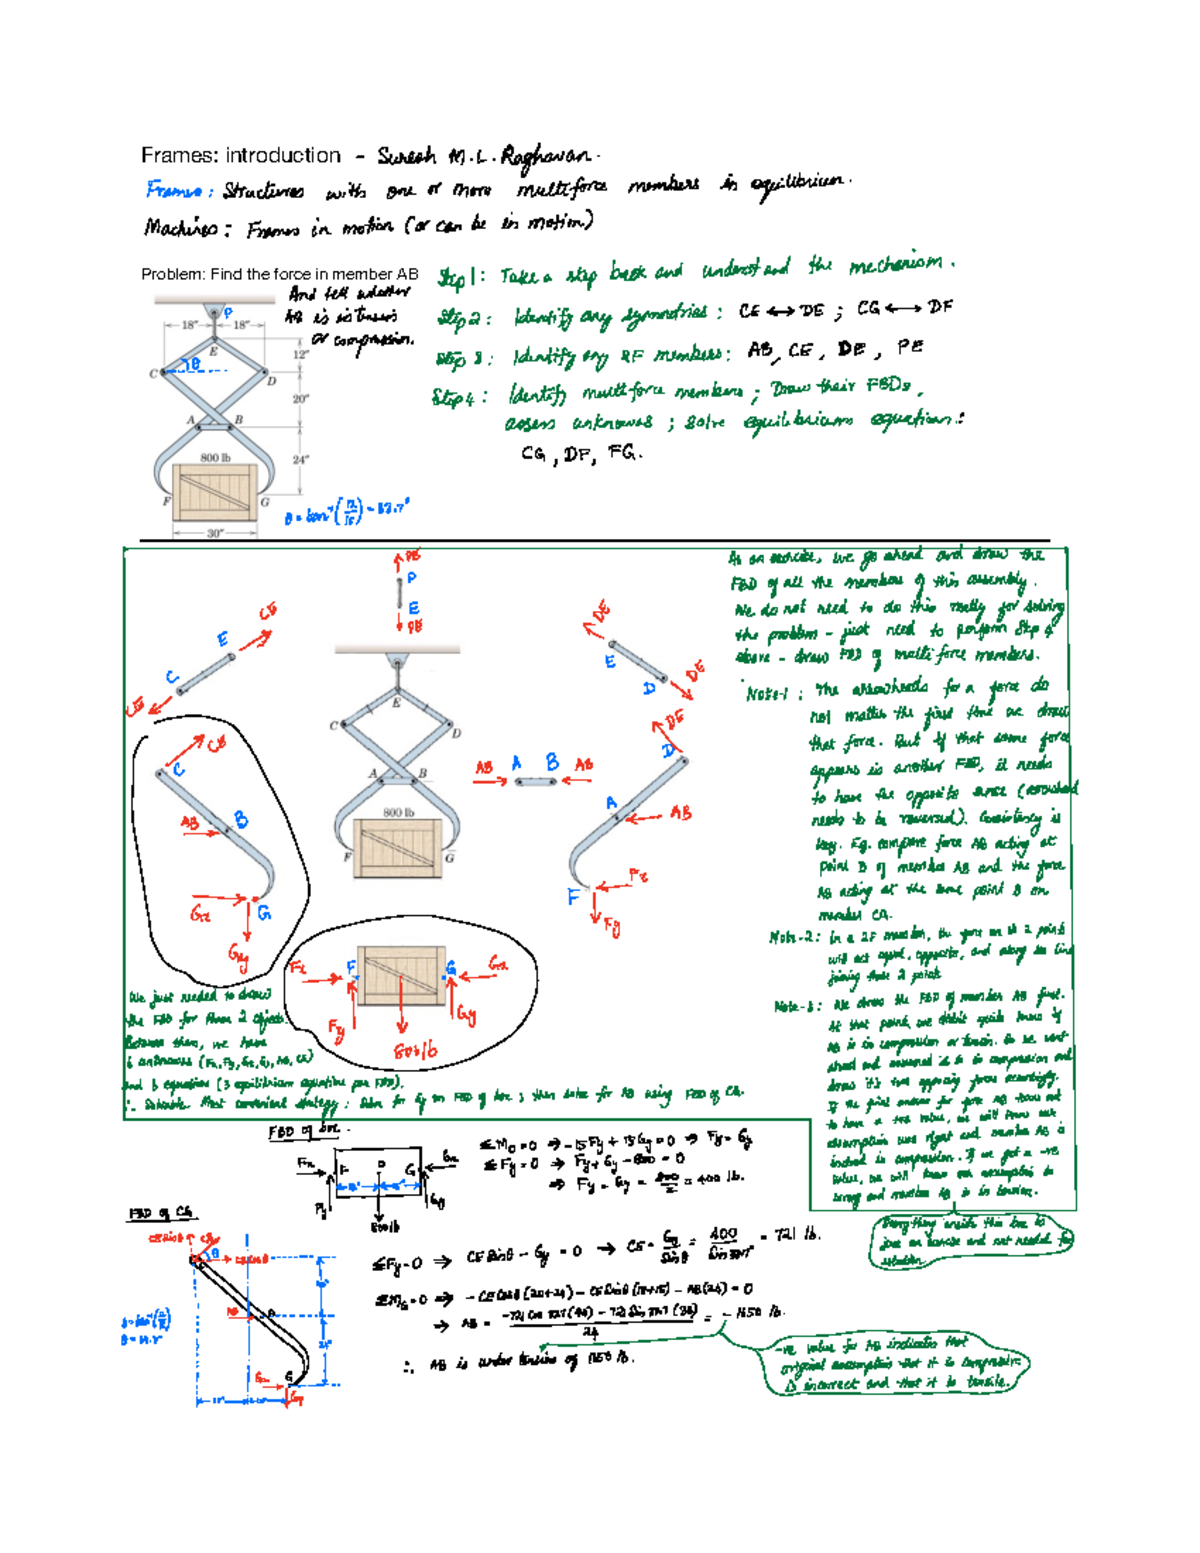 Frames: introduction - Suresh M.L. Raghavan.
Frames: Structures with one or more multiforce members in equilibrium.
Machines: Frames in motion (or can be in motion)
Problem: Find the force in member AB
And tell whether
AB is in tension
or compression.
Step 1: Take a step back and understand the mechanism.
Step 2: Identify any symmetries: CE ↔ DE ; CG ↔ DF
Step 3: Identify any 2F members: AB, CE, DE, PE
Step 4: Identify multiforce members; Draw their FBDs,
assess unknowns; solve equilibrium equations:
CG, DF, FG.
P
18" 18"
E
12"
θ
C D
20"
A B
800 lb
24"
F G
30"
As an exercise, we go ahead and draw the
FBD of all the members of this assembly.
We do not need to do this really for solving
the problem - just need to perform Step 4
above - draw FBD of multi force members.
Note-1: The arrowheads for a force do
not matter the first time we draw
that force. But if that same force
appears in another FBD, it needs
to have the opposite sense (arrowhead
needs to be reversed). Consistency is
key. Eg. compare force AB acting at
point B of member AB and the force
AB acting at the same point B on
member CG.
Note-2: In a 2F member, the force on the 2 points
will act equal, opposite, and along the line
joining those 2 points
Note-3: We draw the FBD of member AB first.
At that point, we didn't quite know if
AB is in compression or tension. So we went
ahead and assumed it is in compression and
drew it's two opposing forces accordingly.
If the final answer for force AB turns out
to have a +ve value, we will know our
assumption was right and member AB is
indeed in compression. If we get a -ve
value, we will know our assumption is
wrong and member AB is in tension.
PE
P
E
PE
CE
E
C
CE
DE
E
D
DE
E
C D
A B
800 lb
F G
CE
C
AB B
Gx G
Gy
AB A B AB
DE
D
A AB
F Fx
Fy
Fx F G Gx
Fy Gy
800 lb
We just needed to draw
the FBD for these 2 objects.
Between them, we have
6 unknowns (Fx, Fy, Gx, Gy, AB, CE)
and 6 equations (3 equilibrium equations per FBD).
∴ Solvable. Most convenient strategy: Solve for Gy on FBD of box; then solve for AB using FBD of CG.
FBD of box.
Fx F O G Gx
Fy Gy
800 lb
ΣMo = 0 ⇒ -15Fy + 15Gy = 0 ⇒ Fy = Gy
ΣFy = 0 ⇒ Fy + Gy - 800 = 0
⇒ Fy = Gy = 800/2 = 400 lb.
Everything inside this box is
just an exercise and not needed for
solution.
FBD of CG
CE sinθ CE
θ CE cosθ
AB
Gx G
Gy
ΣFy = 0 → CE sinθ - Gy = 0 → CE = Gy/Sinθ = 400/Sin 33.7° = 721 lb.
ΣMG = 0 → -CE Cosθ (20+24) - CE Sinθ (18+15) - AB(24) = 0
→ AB =
24
= -1650 lb.
∴ AB is under tension of 1650 lb.
-ve value for AB indicates that
original assumption that it is compressive
is incorrect and that it is tensile.